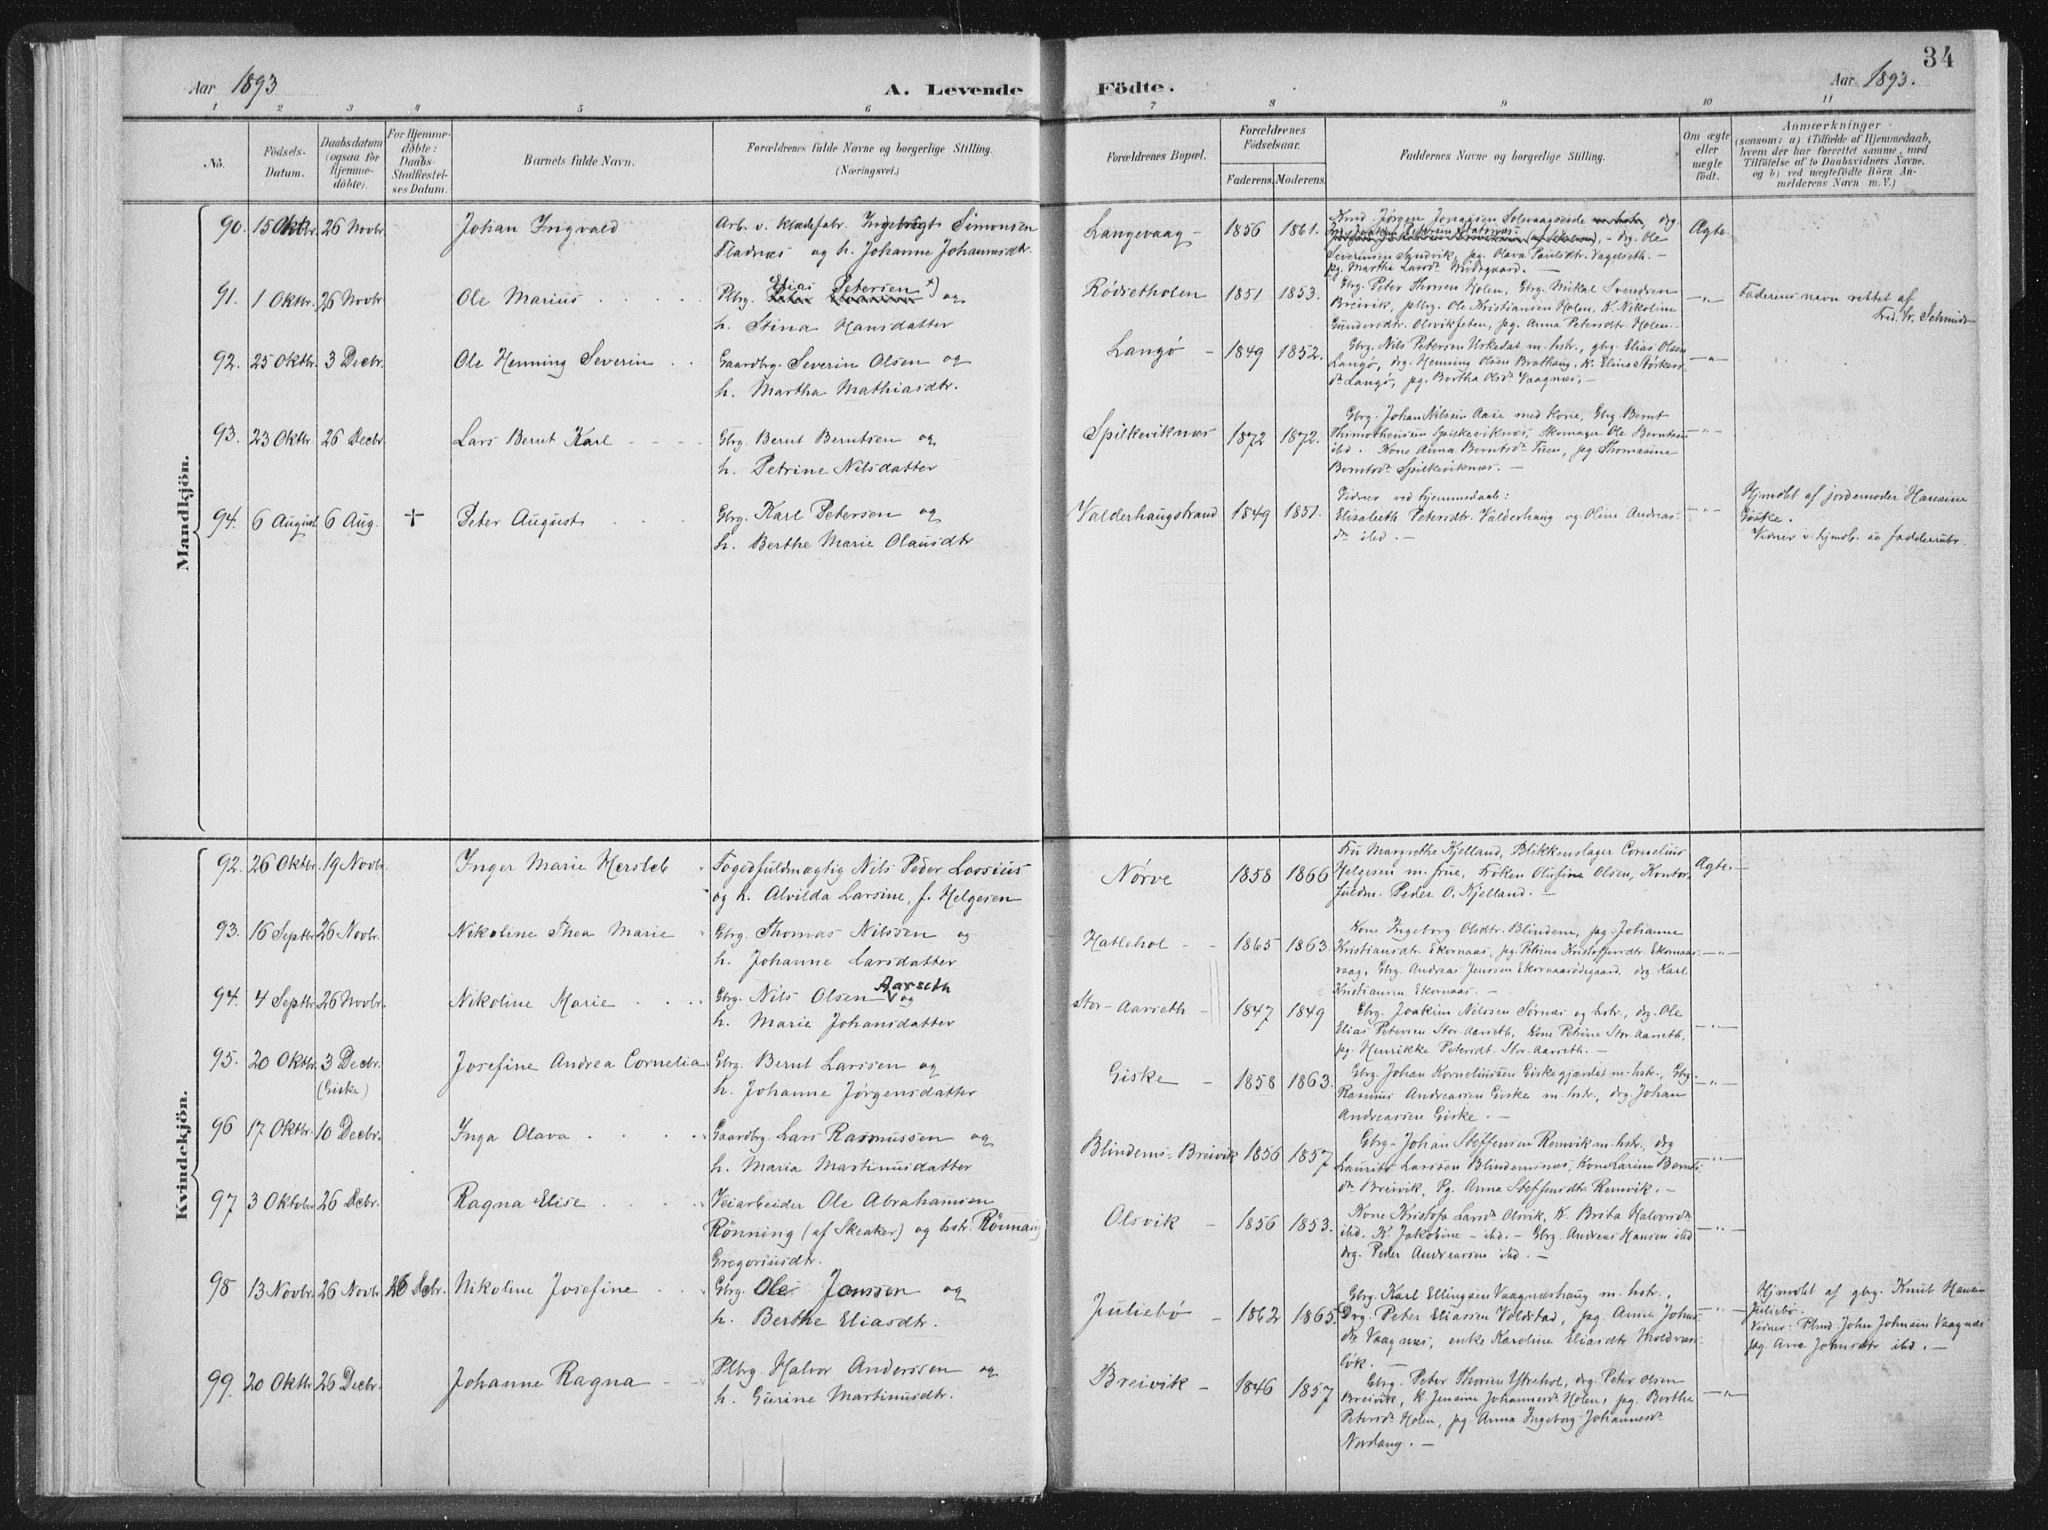 34
Aar 1893
A. Levende Födte.
Aar 1893.
1 2 3 4 5 6 7 8 9 10 11
No.
Födsels-Datum.
Daabsdatum (ogsaa for Hjemme-döbte).
For Hjemme-döbte: Daabs-Stadfæstel-ses Datum.
Barnets fulde Navn.
Forældrenes fulde Navne og borgerlige Stilling. (Næringsvei.)
Forældrenes Bopæl.
Forældrenes Födselsaar.
Faderens. Moderens.
Faddernes Navne og borgerlige Stilling.
Om ægte eller uægte födt.
Anmærkninger
(saasom: a) i Tilfælde af Hjemmedaab,
hvem der har forrettet samme, med
Tilföielse af to Daabsvidners Navne.
og b) ved uægtefödte Börn An-
melderens Navn m. V.)
Mandkjön.
90. 15 Oktbr. 26 Novbr. Johan Ingvald
Arb. v. Klædefabr. Ingebrigt Simonsen
Fladnæs og h. Johanne Johannesdtr.
Langevaag 1856 1861.
Severinsen Syndvik, pg. Olava Paulsdtr. Vagelseth.
pg. Martha Larsdr. Midtgaard.
Ægte.
91. 1 Oktbr. 26 Novbr. Ole Marius
Elias Petersen x)
Plbrg. og
h. Stina Hansdatter
Rødsetholen 1851 1853.
Gbrg. Peter Thorsen Holen, Gbrg. Mikal Svendsen
Breivik, plbrg. Ole Kristiansen Holen, K. Nikoline
Gundersdtr. Olsvikfeten, pg. Anna Petersdtr. Holen.
Faderens navn rettet af
Fred. W. Schmidt
92. 25 Oktbr. 3 Decbr. Ole Henning Severin
Gaardbrg. Severin Olsen og
h. Martha Mathiasdtr.
Langø 1849 1852.
Gbrg. Nils Petersen Urkedal m. hstr., gbrg. Elias Olsen
Langø, drg. Henning Olsen Brathaug, K. Elina Størkers-
dr. Langø, pg. Bertha Olsdr. Vaagnæs.
93. 23 Oktbr. 26 Decbr. Lars Bernt Karl
Gbrg. Bernt Berntsen og
h. Petrine Nilsdatter
Spilkeviknæs 1872 1872.
Gbrg. Johan Nilssen Aase med Kone, Gbrg. Bernt
Thimotheussen Spilkeviknæs, Skomager Ole Berntsen
ibd. Kone Anna Berntsdr. Furen, pg. Thomasine
Berntsdr. Spilkeviknæs.
94. 6 August 6 Aug. † Peter August
Gbrg. Karl Petersen og
h. Berthe Marie Olausdtr
Valderhaugstrand 1849 1851.
Vidner ved hjemmedaab:
Elisabeth Petersdtr. Valderhaug og Oline Andreas-
dr. ibd.
Hjmdbt af jordemoder Hansine
Giske.
Vidner v. hjmdb. se fadderrubr.
Kvindekjön.
92. 26 Oktbr. 19 Novbr. Inger Marie Hersleb
Fogedfuldmægtig Nils Peder Lossius
og h. Alvilda Larsine, f. Helgesen
Nørve 1858 1866
Fru Margrethe Kjelland, Blikkenslager Cornelius
Helgesen m. frue, Frøken Olufine Olsen, Kontor-
fuldm. Peder O. Kjelland.
Ægte.
93. 16 Septbr 26 Novbr. Nikoline Thea Marie
Gbrg. Thomas Nilssen og
h. Johanne Larsdatter
Hatlehol 1865 1863.
Kone Ingeborg Olsdtr. Blindem, pg. Johanne
Kristiansdtr. Ekornaas, pg. Petrine Kristoffersdtr. Ekornaas-
vaag, Gbrg. Andreas Jenssen Ekornaasødegaard. drg. Karl
Kristiansen Ekornaas.
94. 4 Septbr 26 Novbr. Nikoline Marie
Gbrg. Nils Olsen Aarseth og
h. Marie Johansdatter
Stor-Aarseth 1847 1849
Gbrg. Joakim Nilssen Sørnæs og hstr., drg. Ole
Elias Petersen Stor-Aarseth, Kone Petrine Stor-Aarseth,
pg. Henrikke Petersdt. Stor-Aarseth.
95. 20 Oktbr. 3 Decbr. (Giske) Josefine Andrea Cornelia
Gbrg. Bernt Larssen og
h. Johanne Jørgensdatter
Giske 1858 1863.
Gbrg. Johan Korneliussen Giskegjærdet m. hstr., Gbg.
Rasmus Andreassen Giske m. hstr., drg. Johan
Andreassen Giske.
96 17 Oktbr. 10 Decbr. Inga Olava
Gaardbrg. Lars Rasmussen og
h. Maria Martinusdatter
Blindems-Breivik 1856 1857
Gbrg. Johan Steffensen Remvik m. hstr., drg
Laurits Larssen Blindemsnæs, Kone Larine Bernts-
dr. Breivik, Pg. Anna Steffensdtr. Remvik.
97 3 Oktober 26 Decbr. Ragna Elise
Veiarbeider Ole Abrahamsen
Rönning (af Skeaker) og hstr. Rönnaug
Gregoriusdtr.
Olsvik 1856 1853.
Kone Kristofa Larsdr. Olsvik, K. Brita Halvorsdr.
ibd. K. Jakobine ibd. Gbrg. Andreas Hansen ibd
drg. Peder Andreassen ibd.
98 13 Novbr. 26 Novbr 26 Decbr. Nikoline Josefine
Gbrg. Ole Jonsen og
h. Berthe Eliasdtr.
Juliebø 1862 1865.
Gbrg. Karl Ellingsen Vaagneshaug m. hstr.,
Drg. Peter Eliassen Voldstad, pg. Anne Johns-
dr. Vaagnæs, enke Karoline Eliasdtr
Hjmdbt af gbrg. Knut Hansen
Juliebø.
Vidner: John Johnsen Vaagnæs
pg. Ane Johnsdtr ibd.
99. 20 Oktbr 26 Decbr. Johanne Ragna
Plbrg. Halvor Anderssen og
h. Gurine Martinusdtr.
Breivik 1846 1857
Gbrg. Peter Thorsen Ytrehol, drg. Peter Olsen
Breivik, k. Jensine Johannesdr. Holen, pg. Berthe
Petersdr. Holen, pg. Anna Ingeborg Johannesdr.
Nordang.